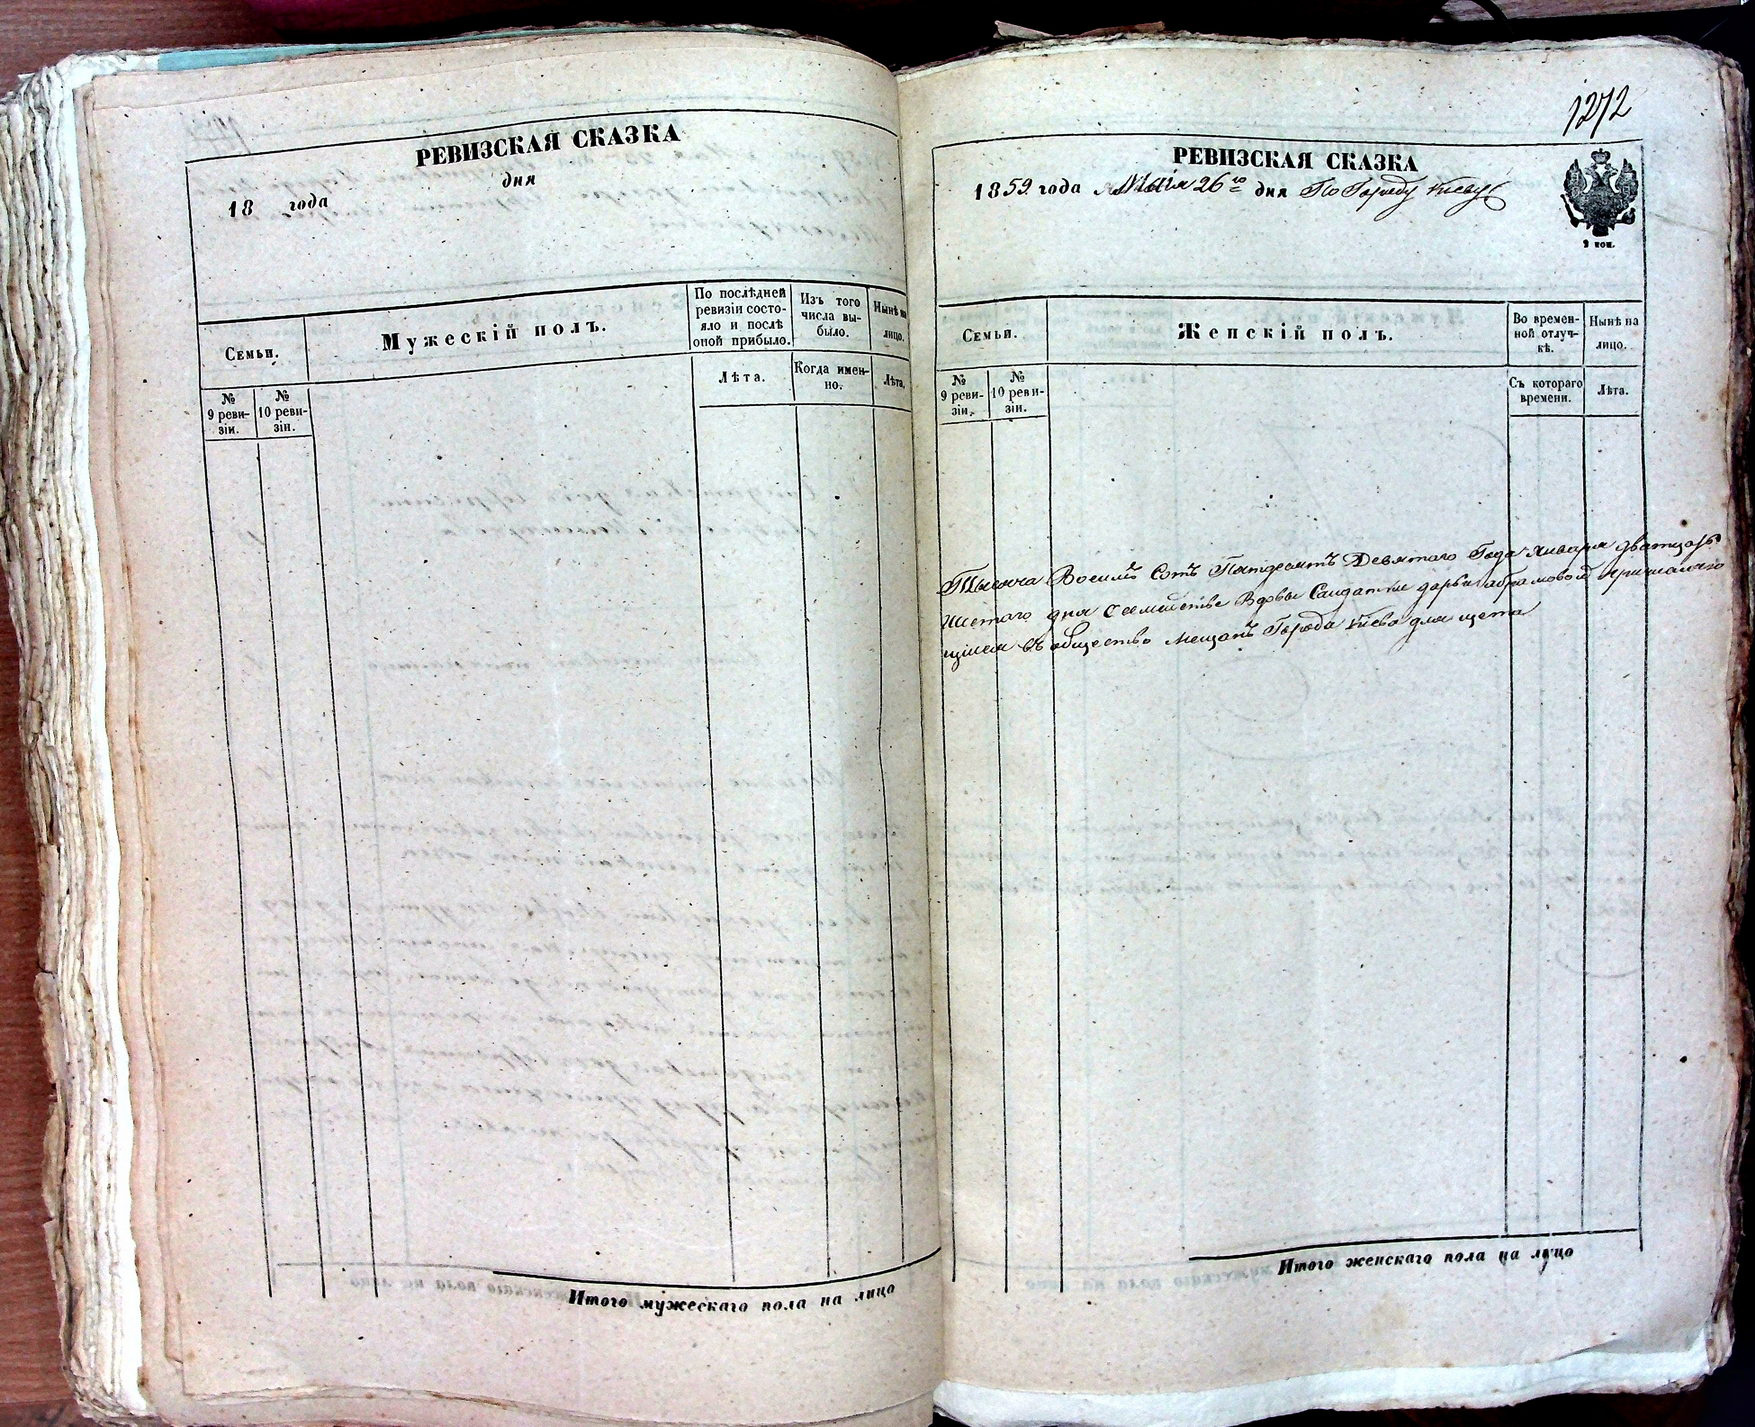 РЕВИЗСКАЯ СКАЗКА
18 года дня
Семьи.
Мужескій полъ.
По послѣдней ревизіи состо-
яло и послѣ
оной прибыло.
Изъ того
числа вы-
было.
Нынѣ на
лицо.
№
9 реви-
зіи.
№
10 реви-
зіи.
Лѣта.
Когда имен-
но.
Лѣта.
Итого мужескаго пола на лицо
1272
РЕВИЗСКАЯ СКАЗКА
1859 года Маія 26го дня По Городу Кіеву
2 коп.
Семьи.
Женскій полъ.
Во времен-
ной отлуч-
кѣ.
Нынѣ на
лицо.
№
9 реви-
зіи.
№
10 реви-
зіи.
Съ котораго
времени.
Лѣта.
Тысяча Восимъ Сотъ Пятдесятъ Девятого Года Января дватцать
шетого дня Вдовы Салдатки дарьи абрамовой
въ общество мещанъ Города Кіева для щета
Итого женскаго пола на лицо